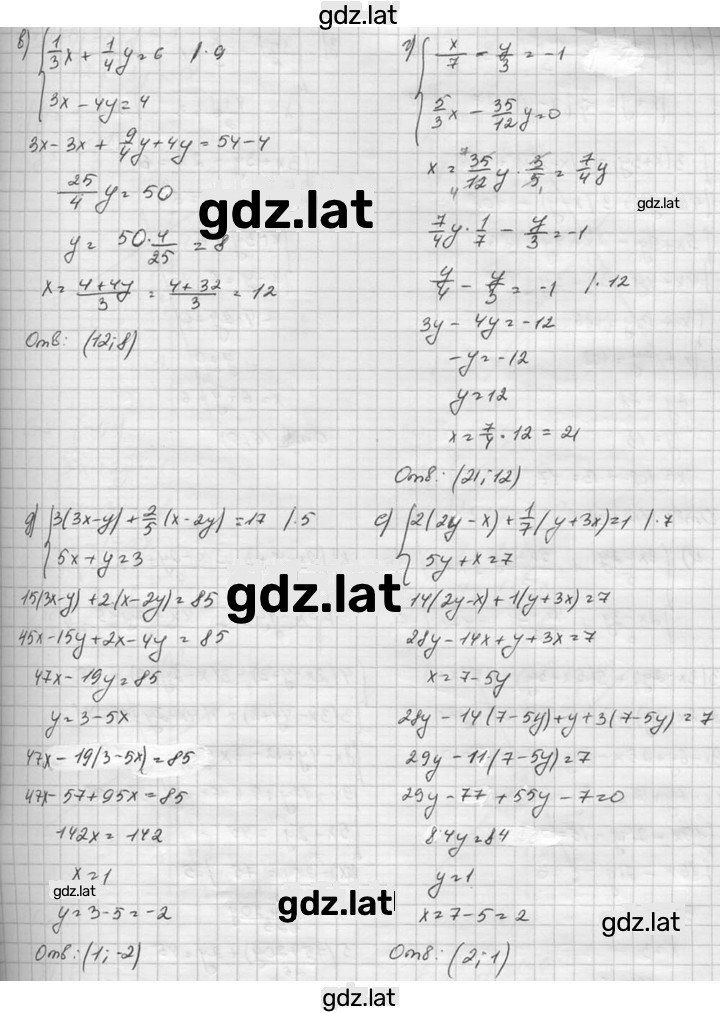 gdz.lat
в) { 1/3 x + 1/4 y = 6 /·9
3x - 4y = 4
3x - 3x + 9/4 y + 4y = 54 - 4
25/4 y = 50
y = 50·4/25 = 8
x = (4+4y)/3 = (4+32)/3 = 12
Отв: (12; 8)
г) { x/7 - y/3 = -1
5/3 x - 35/12 y = 0
x = 35/12 y · 3/5 = 7/4 y
7/4 y · 1/7 - y/3 = -1
y/4 - y/3 = -1 /·12
3y - 4y = -12
-y = -12
y = 12
x = 7/4 · 12 = 21
Отв: (21; 12)
gdz.lat
gdz.lat
д) { 3(3x-y) + 2/5 (x-2y) = 17 /·5
5x + y = 3
15(3x-y) + 2(x-2y) = 85
45x - 15y + 2x - 4y = 85
47x - 19y = 85
y = 3 - 5x
47x - 19(3-5x) = 85
47x - 57 + 95x = 85
142x = 142
x = 1
y = 3 - 5 = -2
Отв: (1; -2)
е) { 2(2y-x) + 1/7 (y+3x) = 1 /·7
5y + x = 7
14(2y-x) + 1(y+3x) = 7
28y - 14x + y + 3x = 7
x = 7 - 5y
28y - 14(7-5y) + y + 3(7-5y) = 7
29y - 11(7-5y) = 7
29y - 77 + 55y - 7 = 0
84y = 84
y = 1
x = 7 - 5 = 2
Отв: (2; 1)
gdz.lat
gdz.lat
gdz.lat
gdz.lat
gdz.lat